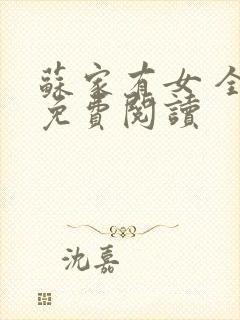 蘇家有女 全
免費閱讀
沈嘉